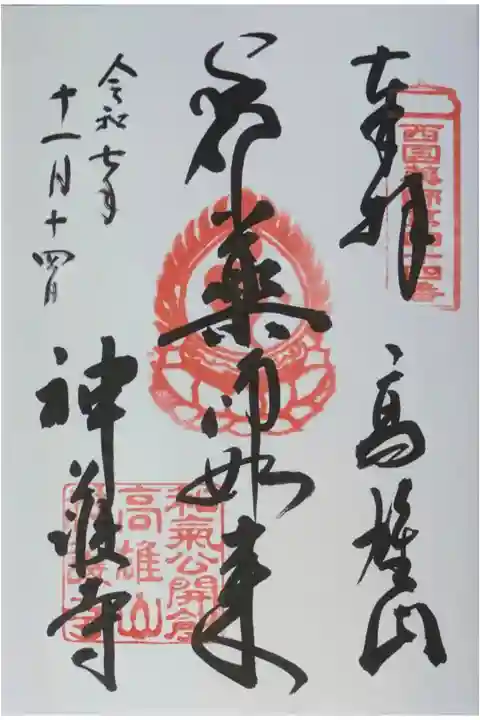 奉拝
高雄山
西国薬師第四十四番
薬師如来
令和七年
十一月十四日
神護寺
和氣公開創
高雄山
神護寺